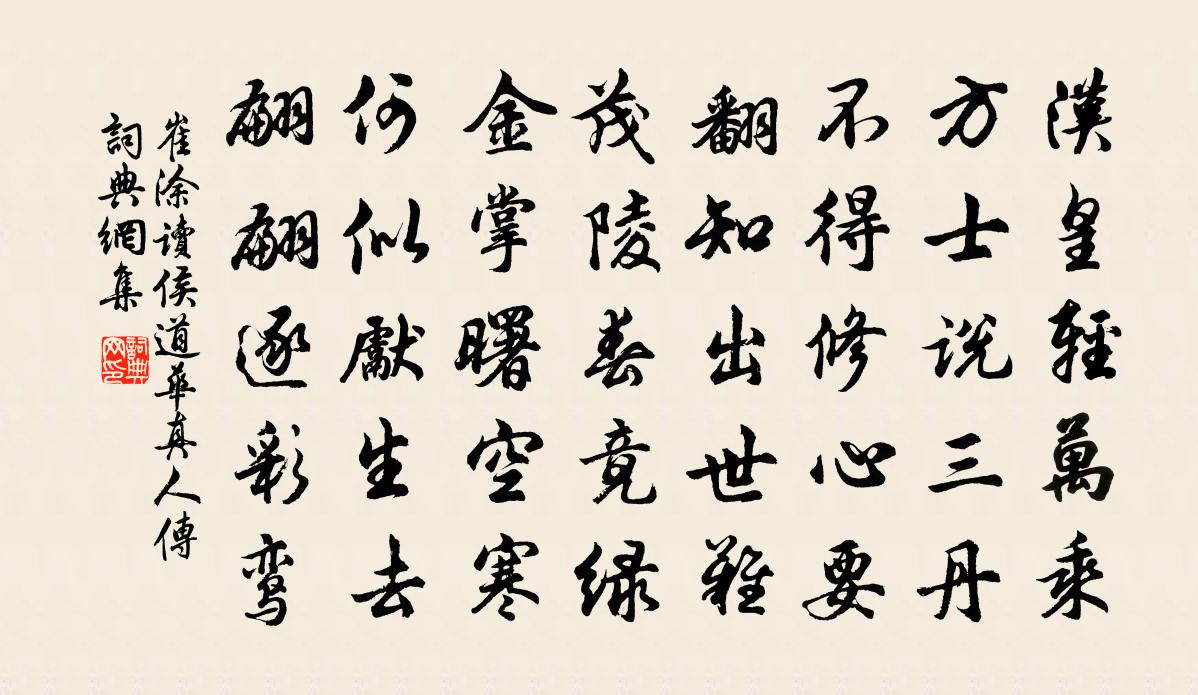 漢皇輕萬乘
方士説三丹
不得修心要
翻知出世難
茂陵春竟緑
金掌曙空寒
何似獻生去
翩翩逐彩鸾
崔涂讀侯道華真人傳
詞典網集
詞典
网印